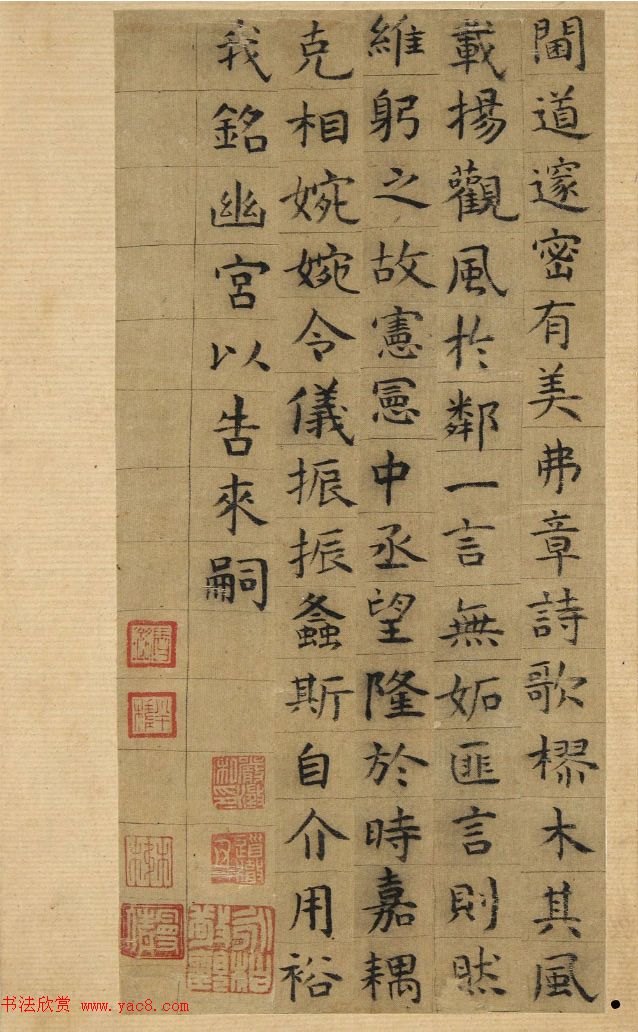 閫道邃密有美弗章詩歌樛木其風
載揚觀風於鄰一言無妬匪言則然
維躬之故憲憲中丞望隆於時嘉耦
克相婉婉令儀振振螽斯自介用裕
我銘幽宮以告來嗣
书法欣赏 www.yac8.com